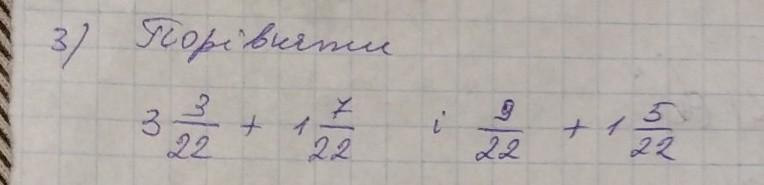 3) Порівняти
3 3/22 + 1 7/22 і 9/22 + 1 5/22